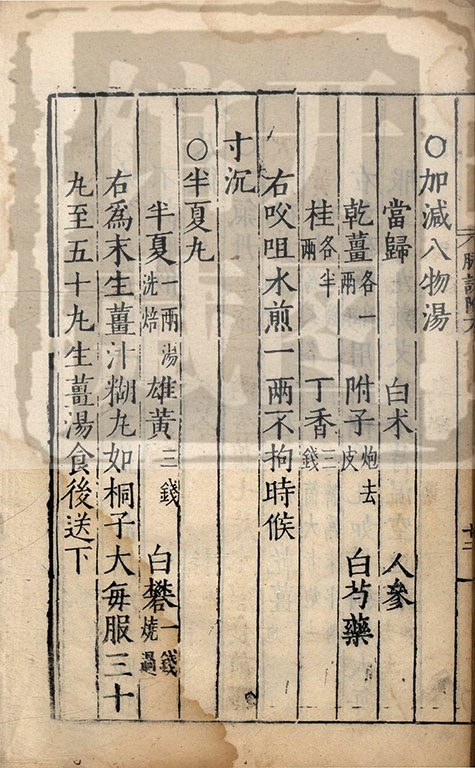 ○加減八物湯
當歸 白术 人參
乾薑各一兩 附子炮去皮 白芍藥
桂各半兩 丁香三錢
右㕮咀水煎一兩不拘時候
寸沉
○半夏丸
半夏一兩湯洗焙 雄黃三錢 白礬一錢燒過
右爲末生薑汁糊丸如桐子大每服三十
丸至五十丸生薑湯食後送下